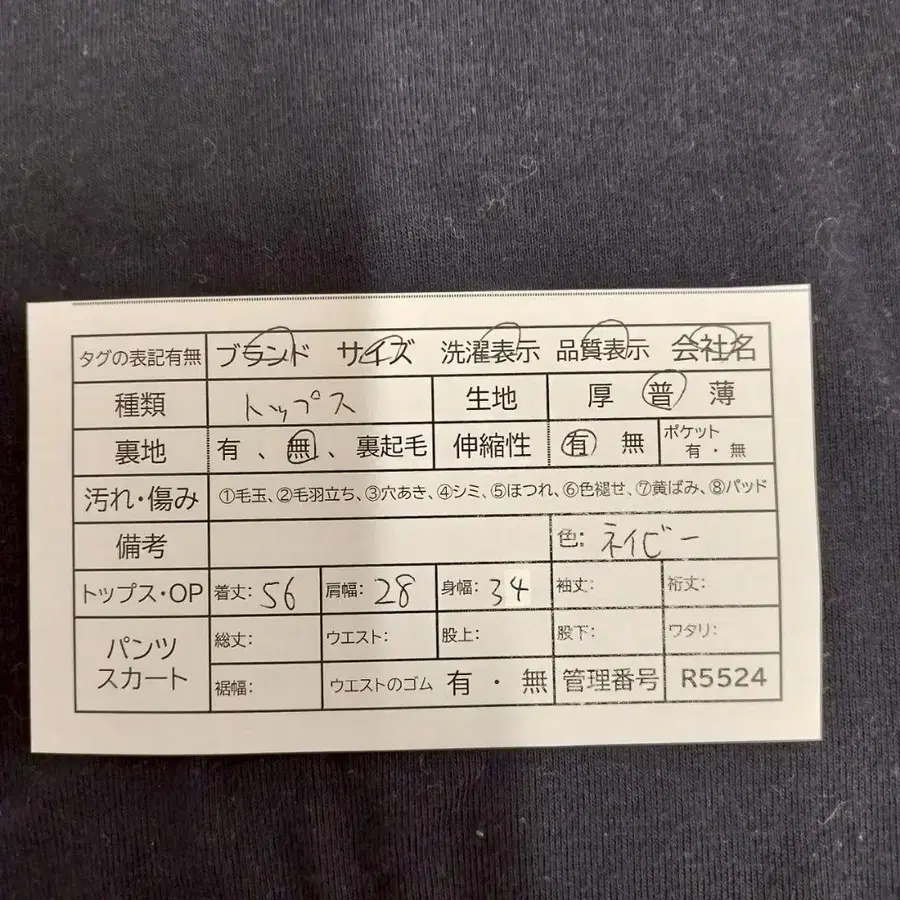 タグの表記有無 ブランド サイズ 洗濯表示 品質表示 会社名
種類 トップス 生地 厚 普 薄
裏地 有、無、裏起毛 伸縮性 有 無 ポケット 有・無
汚れ・傷み ①毛玉、②毛羽立ち、③穴あき、④シミ、⑤ほつれ、⑥色褪せ、⑦黄ばみ、⑧パッド
備考 色: ネイビー
トップス・OP 着丈: 56 肩幅: 28 身幅: 34 袖丈: 裄丈:
パンツ スカート 総丈: ウエスト: 股上: 股下: ワタリ:
裾幅: ウエストのゴム 有・無 管理番号 R5524